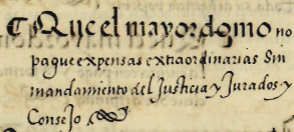 ¶ Que el mayordomo no
pague expensas extraordinarias sin
mandamiento del Justicia y Jurados y
Consejo